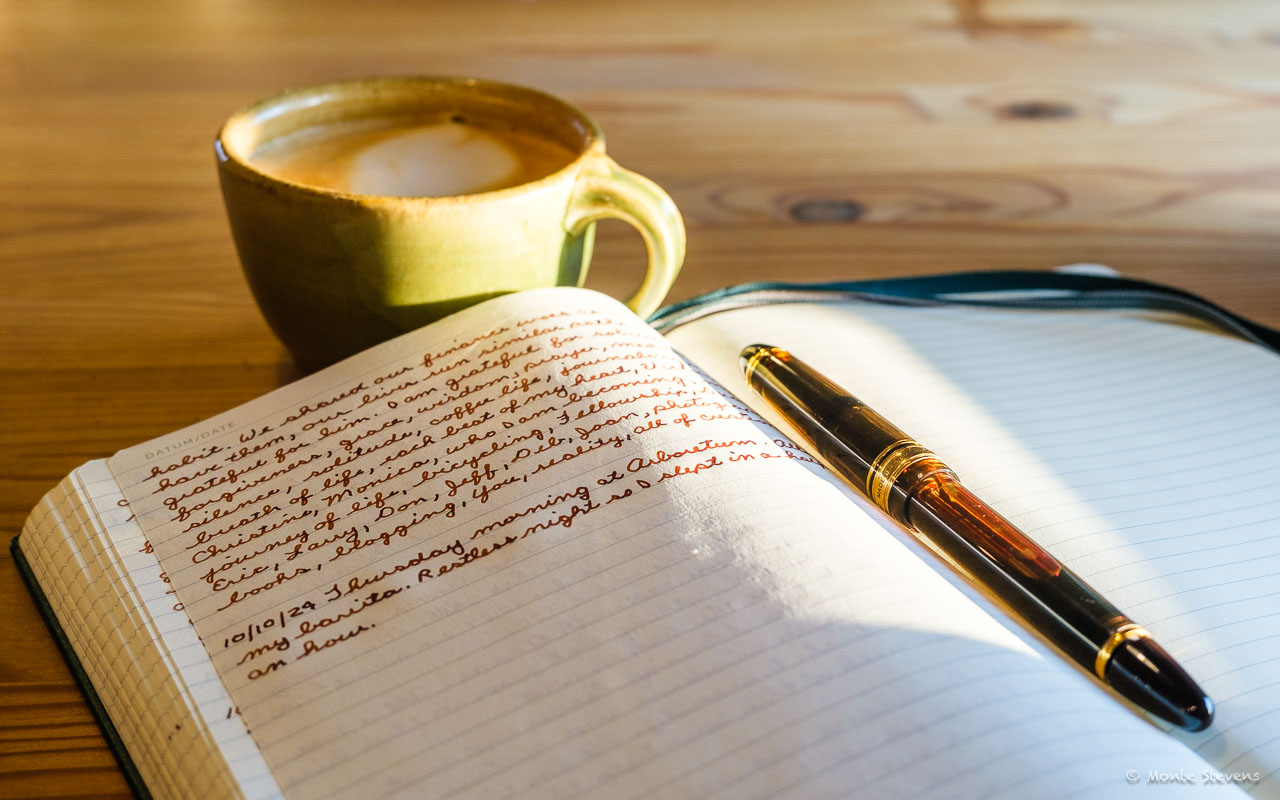 DATUM/DATE
habit. We shared our finance
have them, our lives run similar
grateful for him. I am grateful for
forgiveness, grace, wisdom, prayer,
silence, solitude, coffee life,
breath of life, each beat of my heart,
Christine, Monica, who I am becoming,
journey of life, bicycling, fellowship,
Eric, Larry, Don, Jeff, Deb, Joan,
books, blogging, You, reality, all of
10/10/24 Thursday morning at Arboretum.
my barista. Restless night so I slept in a
an hour.
© Monte Stevens